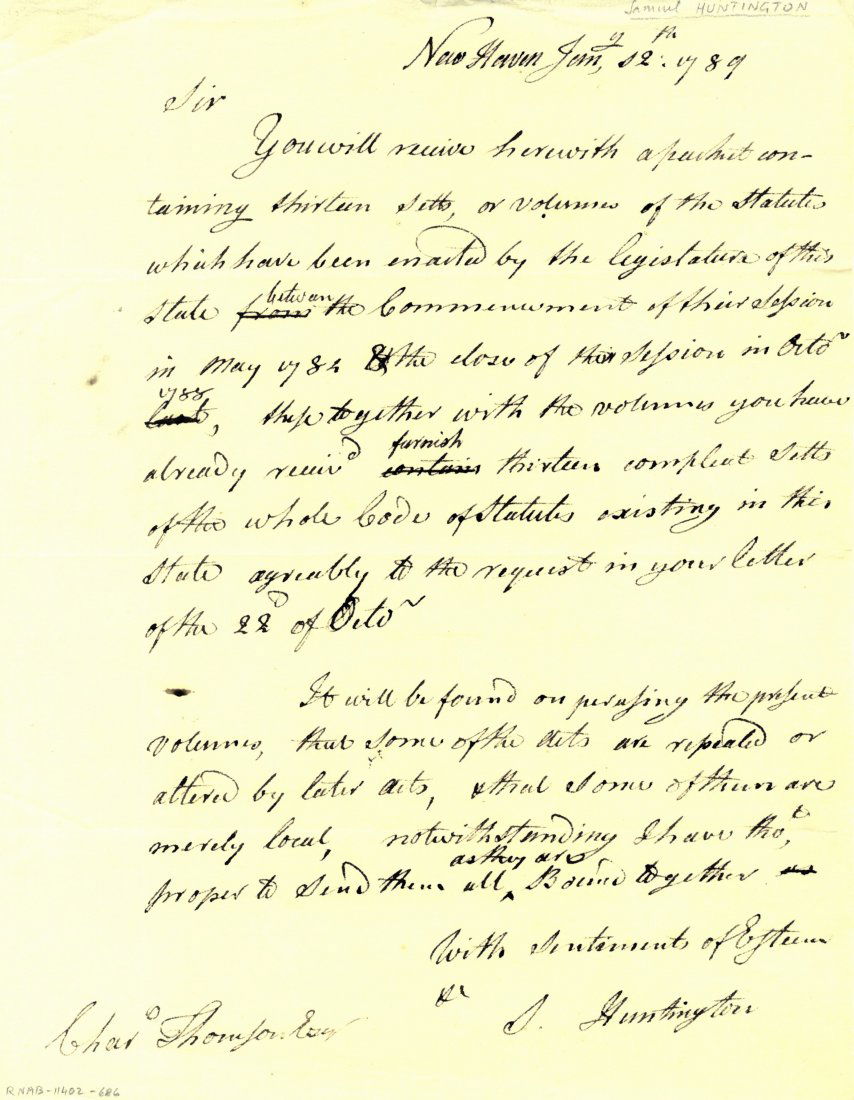 Samuel HUNTINGTON
New Haven Jany. 12th. 1789
Sir
You will receive herewith a packet con-
taining thirteen Setts, or volumes of the Statutes
which have been enacted by the legislature of this
State from between the Commencement of their Session
in May 1784 & the close of their Session in Octor
last 1788, these together with the volumes you have
already receivd contain furnish thirteen compleat Setts
of the whole Code of Statutes existing in this
State agreably to the request in your letter
of the 22d of Octor
It will be found on perusing the present
volumes, that some of the Acts are repealed or
altered by later Acts, & that some of them are
merely local, notwithstanding I have thot,
proper to send them all, as they are Bound together as
With Sentiments of Esteem
&c
S. Huntington
Chars Thomson Esqr
RNAB-11402-686